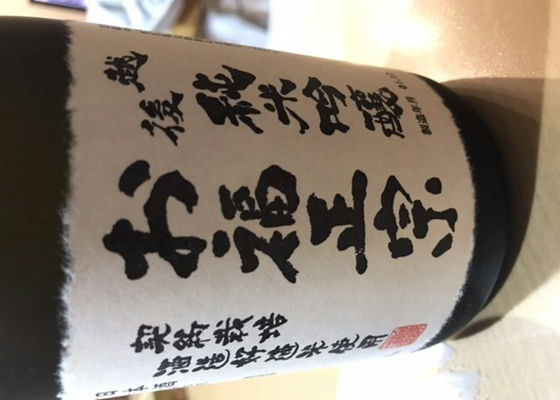 越後
純米吟醸
製造年月
お福正宗
契約栽培
酒造好適米使用
日本酒